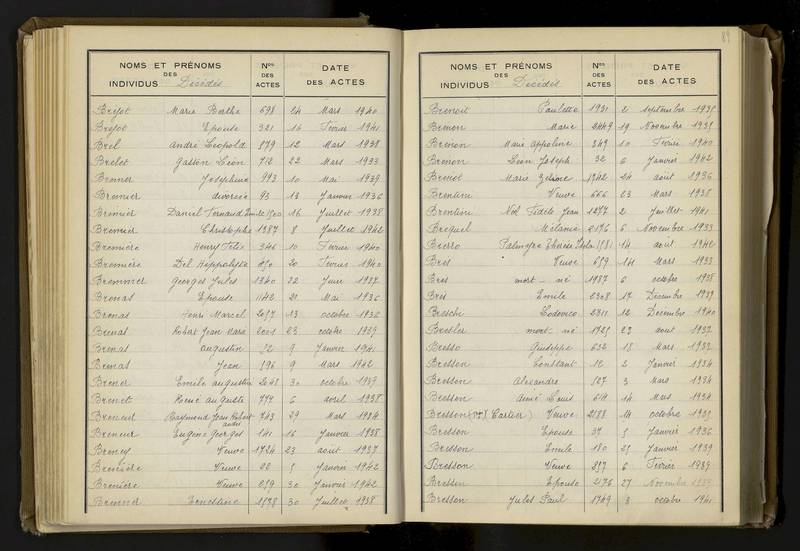 NOMS ET PRÉNOMS
DES
INDIVIDUS Décédés
Nos
DES
ACTES
DATE
DES ACTES
Brejot Marie Berthe 698 24 Mars 1940
Brejot Epouse 321 16 Février 1941
Brel André Léopold 879 12 Mars 1938
Brelet Gaston Léon 712 22 Mars 1933
Bremer Joséphine 993 10 Mai 1939
Bremier divorcée 93 13 Janvier 1936
Bremier Daniel Fernand 16 Juillet 1938
Bremier Christophe 1387 8 Juillet 1942
Bremière Henry Félix 346 10 Février 1940
Bremière Del Hippolyte 20 Février 1940
Bremmer Georges Jules 1340 22 Juin 1937
Brenas Epouse 1142 21 Mai 1936
Brenas Henri Marcel 2097 13 octobre 1936
Brenas Robert Jean Marie 2001 23 octobre 1939
Brenas Augustin 9 Janvier 1941
Brenas Jean 596 9 Mars 1942
Brener Emile Augustin 2048 30 octobre 1939
Brenet René Auguste 774 6 avril 1938
Breneut Raymond Jean Robert André 743 29 Mars 1934
Breneur Eugène Georges 141 16 Janvier 1938
Breney Veuve 1724 23 aout 1937
Brenière Veuve 22 5 Janvier 1942
Brenière Veuve 259 30 Janvier 1942
Brenner Ernestine 1578 30 Juillet 1938
89
NOMS ET PRÉNOMS
DES
INDIVIDUS Décédés
Nos
DES
ACTES
DATE
DES ACTES
Brenoit Paulette 1931 2 septembre 1939
Brenon Marie 2449 19 Novembre 1935
Brenon Marie Appoline 349 10 Février 1940
Brenon Léon Joseph 32 6 Janvier 1942
Brenot Marie Zélime 1742 24 aout 1936
Brentini Veuve 666 23 Mars 1938
Brentini Nol Fidèle Jean 1277 2 Juillet 1941
Brequel Mélanie 2176 6 Novembre 1933
Brero Palmyre Thérèse 1581 14 aout 1942
Bres Veuve 659 14 Mars 1933
Bres mort-né 1987 6 octobre 1938
Bres Emile 2308 17 Décembre 1939
Breschi Lodovico 2811 12 Décembre 1940
Bresler mort-né 1725 22 aout 1937
Bresso Guiseppe 652 18 Mars 1932
Bresson Constant 12 2 Janvier 1934
Bresson Alexandre 527 3 Mars 1934
Bresson Aimé Louis 614 14 Mars 1934
Bresson (née Cartier) Veuve 2188 14 octobre 1935
Bresson Epouse 37 5 Janvier 1936
Bresson Emile 180 21 Janvier 1939
Bresson Veuve 297 6 Février 1939
Bresson Epouse 2176 27 Novembre 1939
Bresson Jules Paul 1749 3 octobre 1941